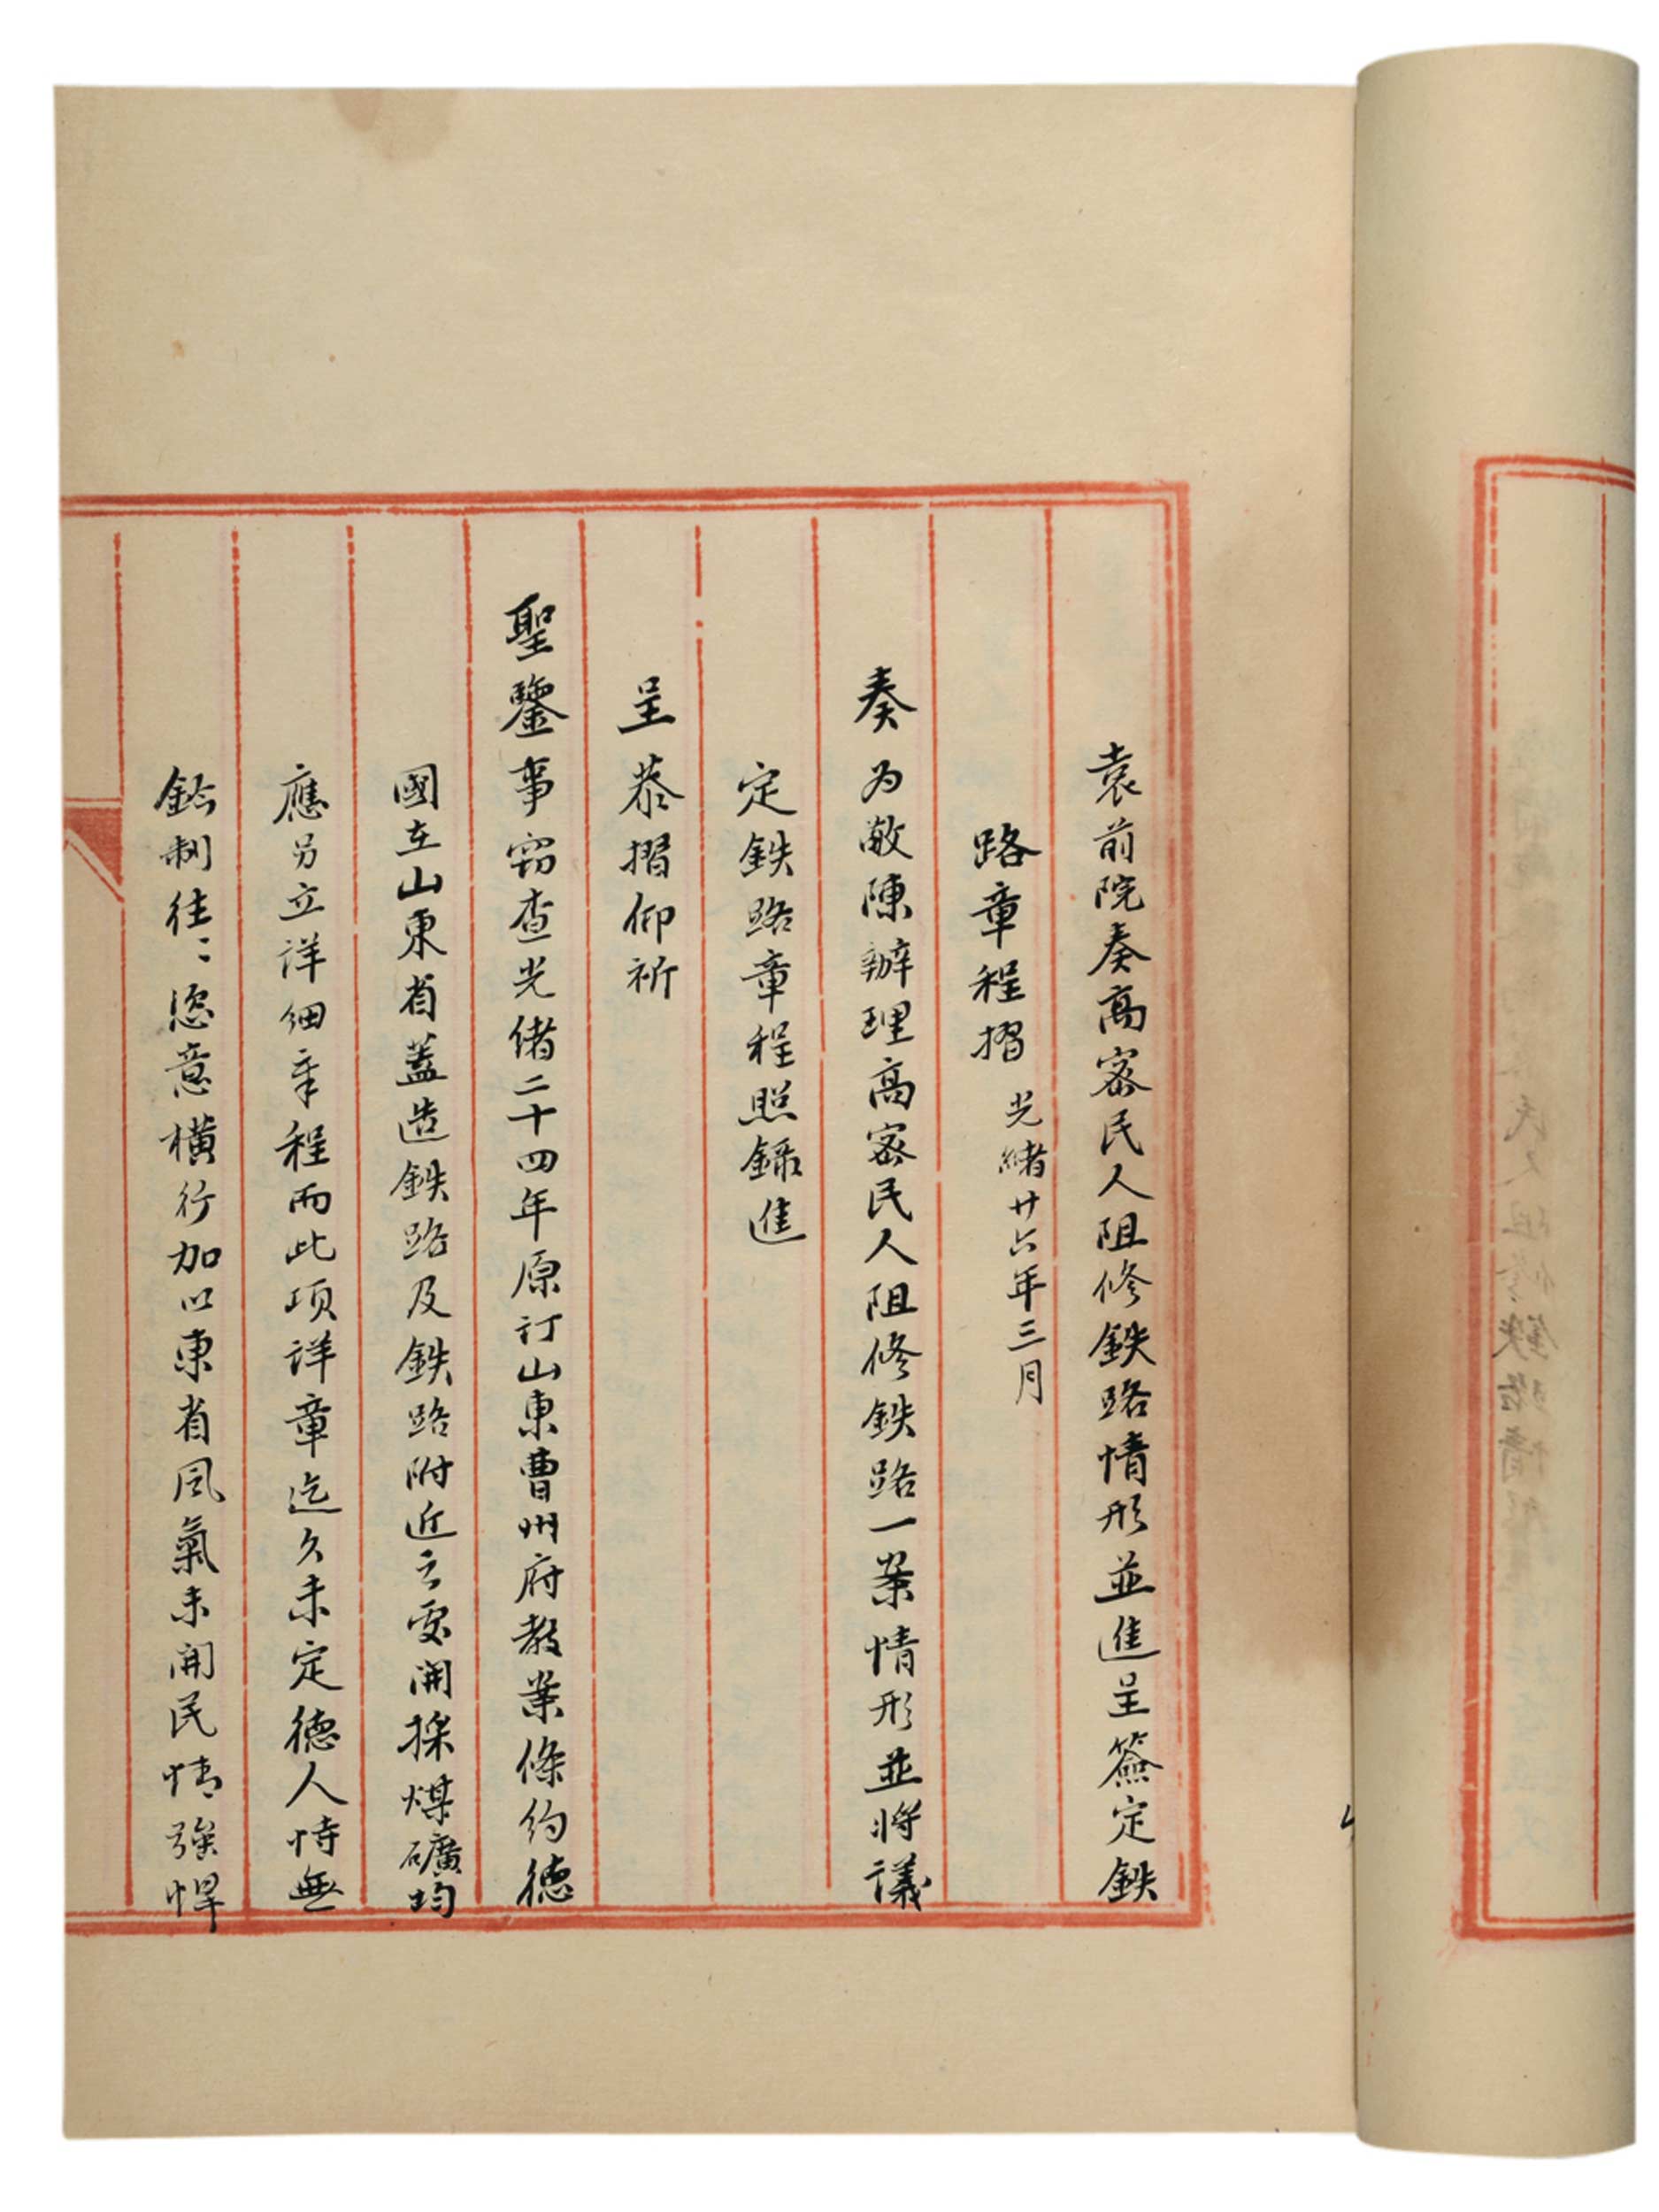 袁前院奏高密民人阻修鉄路情形並進呈簽定鉄
路章程摺 光緒廿六年三月
奏為敬陳辦理高密民人阻修鉄路一案情形並將議
定鉄路章程照錄進
呈恭摺仰祈
聖鑒事窃查光緒二十四年原訂山東曹州府教案條約德
國在山東省蓋造鉄路及鉄路附近之處開採煤礦均
應另立詳細章程而此項詳章迄久未定德人恃無
鈐制往〻恣意橫行加以東省風氣未開民情強悍